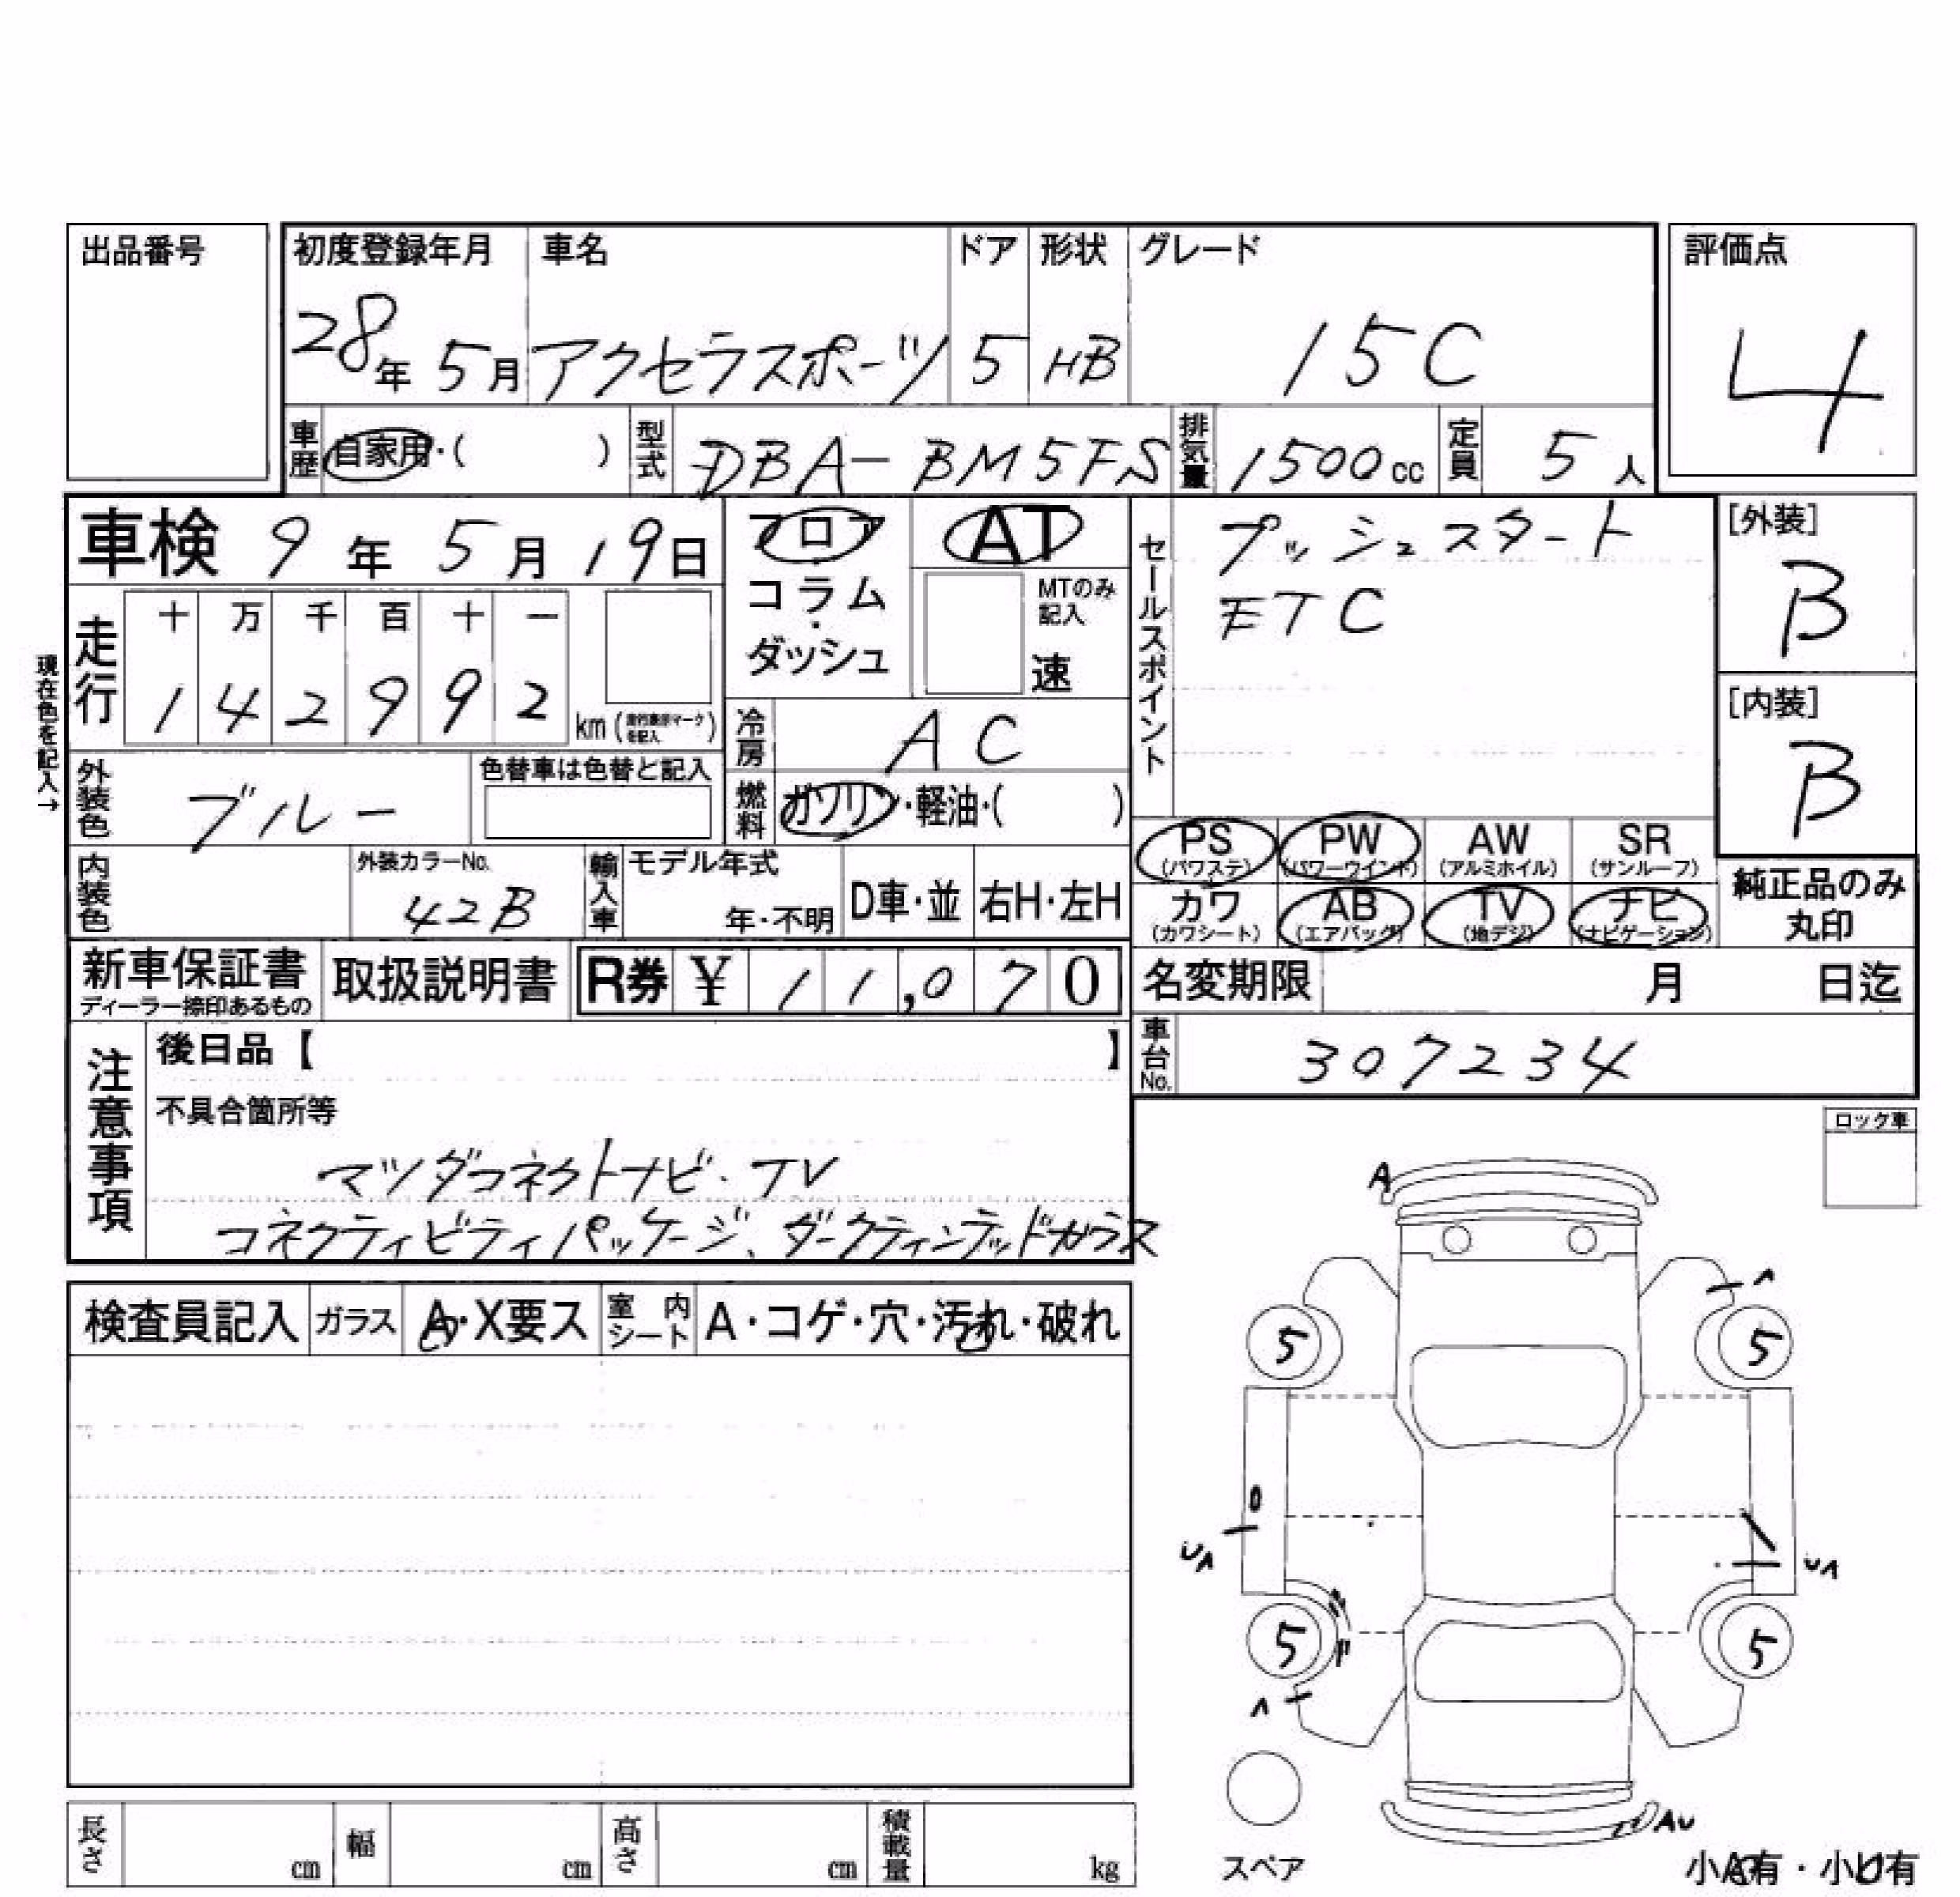 出品番号
初度登録年月 車名 ドア 形状 グレード 評価点
28年 5月 アクセラスポーツ 5 HB 15C 4
車歴 自家用・( ) 型式 DBA-BM5FS 排気量 1500cc 定員 5人
車検 9年 5月 19日 フロア AT
コラム・ダッシュ MTのみ記入 速
セールスポイント プッシュスタート
ETC
[外装] B
[内装] B
走行 十 万 千 百 十 一
1 4 2 9 9 2 km
現在色を記入→
冷房 AC
外装色 ブルー 色替車は色替と記入
燃料 ガソリン・軽油・( )
PS (パワステ) PW (パワーウインド) AW (アルミホイル) SR (サンルーフ)
カワ (カワシート) AB (エアバッグ) TV (地デジ) ナビ (ナビゲーション)
純正品のみ丸印
内装色 外装カラーNo. 42B 輸入車 モデル年式 年・不明 D車・並 右H・左H
新車保証書 ディーラー捺印あるもの 取扱説明書 R券 ¥ 11,070
名変期限 月 日迄
車台No. 307234
注意事項 後日品【 】
不具合箇所等
マツダコネクトナビ・TV
コネクティビティパッケージ、ダークティンテッドガラス
ロック車
検査員記入 ガラス A・X要ス 室内シート A・コゲ・穴・汚れ・破れ
A
A
5 5
UA UA
5 5
A
AU
スペア
小A有・小U有
長さ cm 幅 cm 高さ cm 積載量 kg